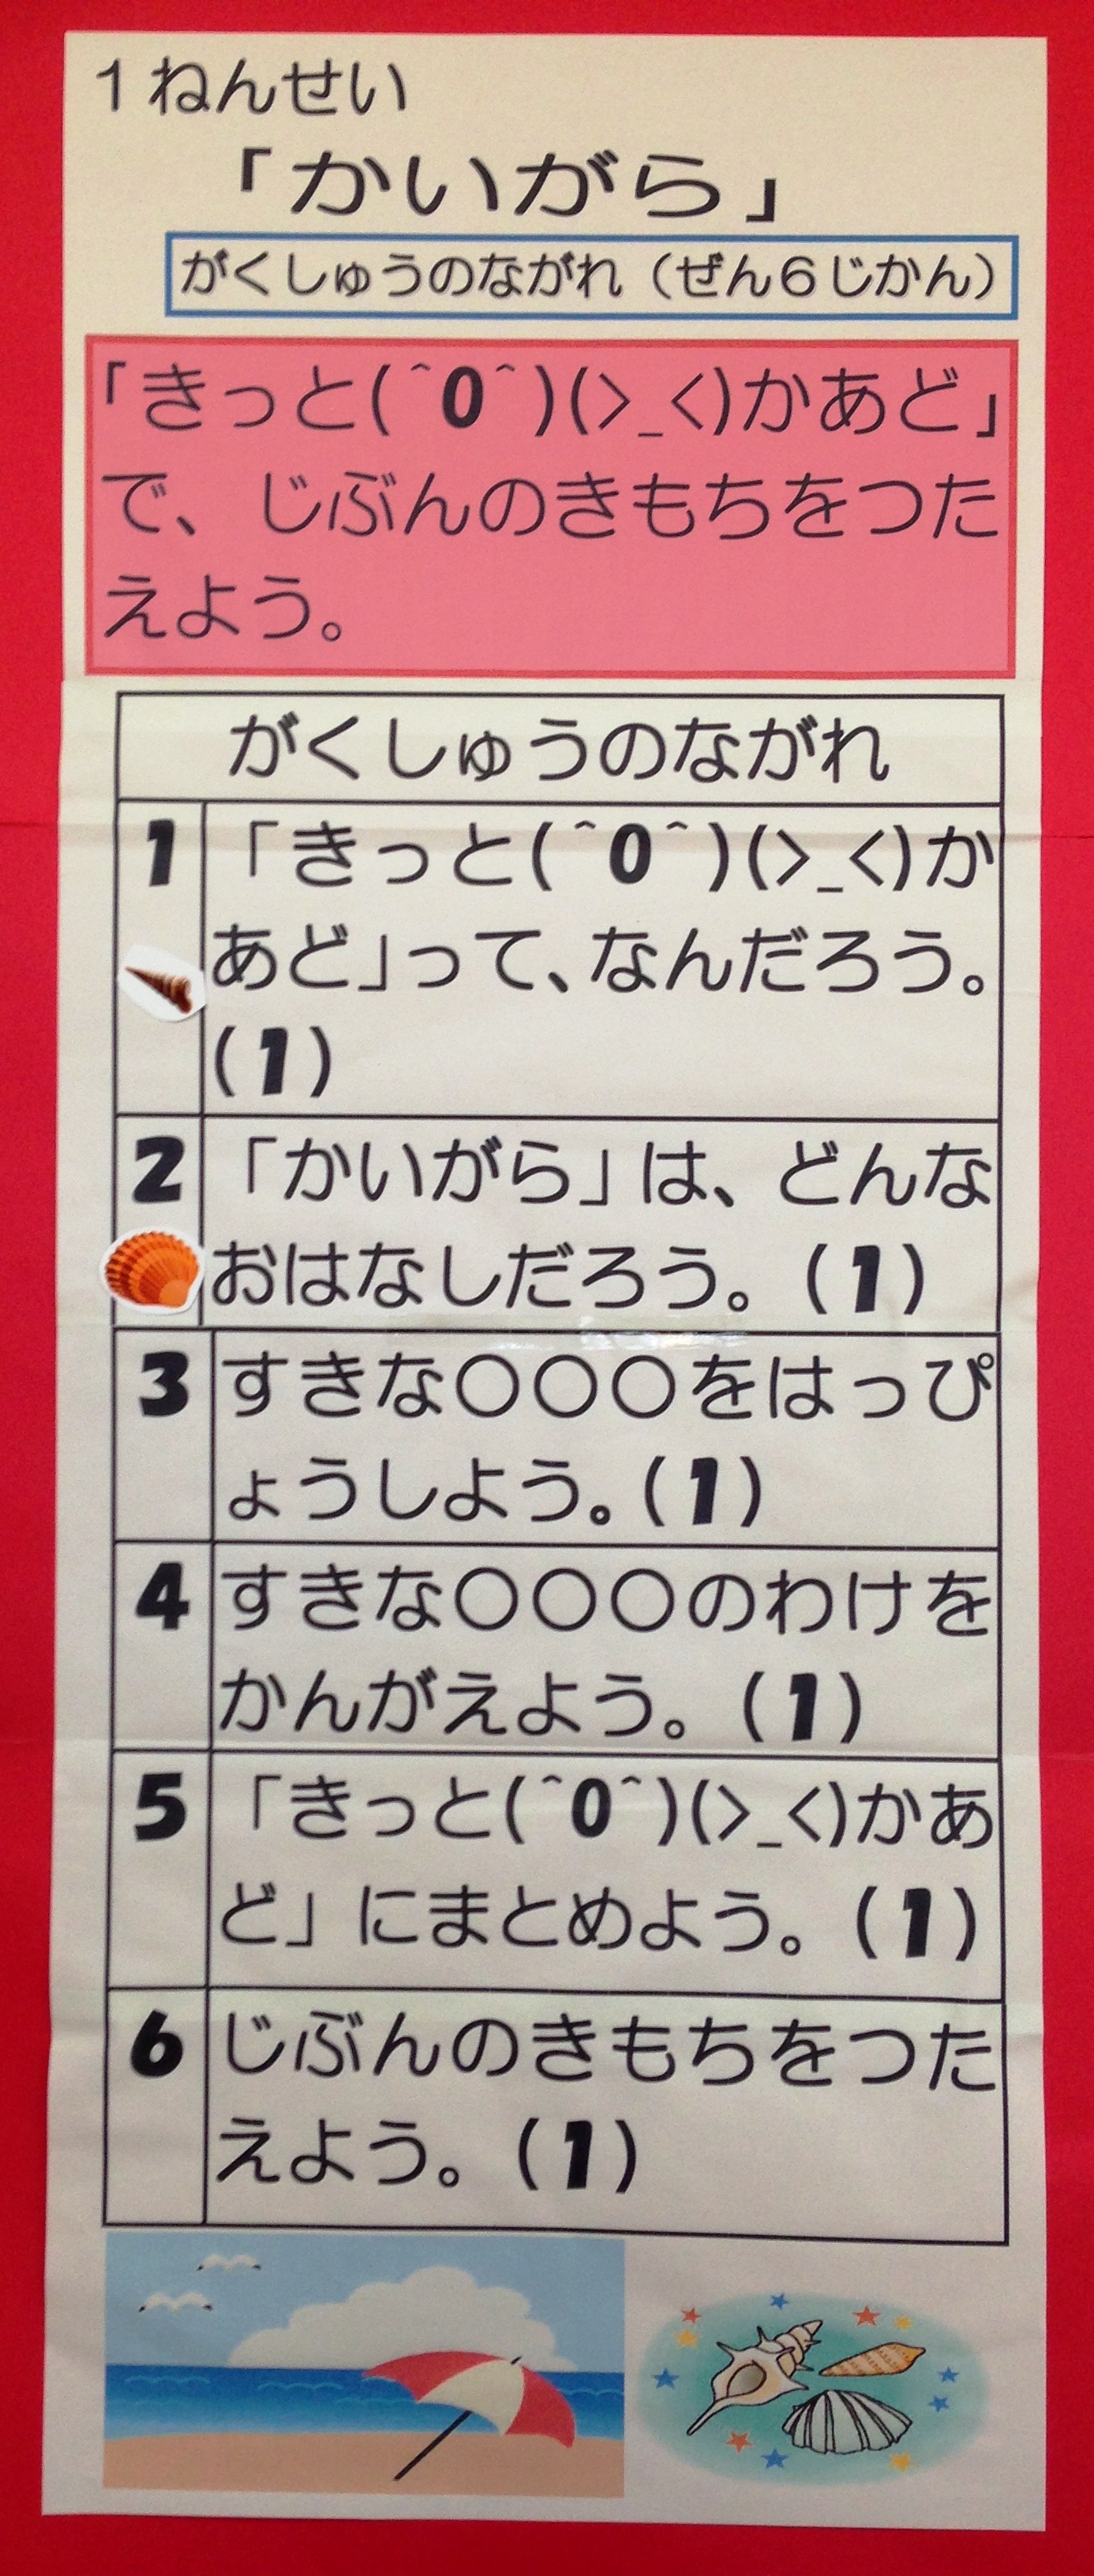 1ねんせい
「かいがら」
がくしゅうのながれ(ぜん6じかん)
「きっと(^0^)(>_<)かあど」
で、じぶんのきもちをつた
えよう。
がくしゅうのながれ
1 「きっと(^0^)(>_<)か
あど」って、なんだろう。
(1)
2 「かいがら」は、どんな
おはなしだろう。(1)
3 すきな〇〇〇をはっぴ
ょうしよう。(1)
4 すきな〇〇〇のわけを
かんがえよう。(1)
5 「きっと(^0^)(>_<)かあ
ど」にまとめよう。(1)
6 じぶんのきもちをつた
えよう。(1)